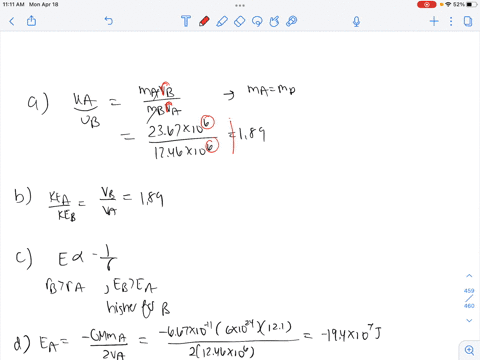 11:11 AM Mon Apr 18
52%
a) UA/UB = mA rB / mB rA → mA = mB
= 23.67×10^6 / 12.46×10^6 = 1.89
b) KEA/KEB = rB/rA = 1.89
c) E ∝ -1/r
rB > rA , EB > EA
higher for B
d) EA = -GMmA / 2rA = -6.67×10^-11 (6×10^24)(12.1) / 2(12.46×10^6) = -19.4×10^7 J
459
460